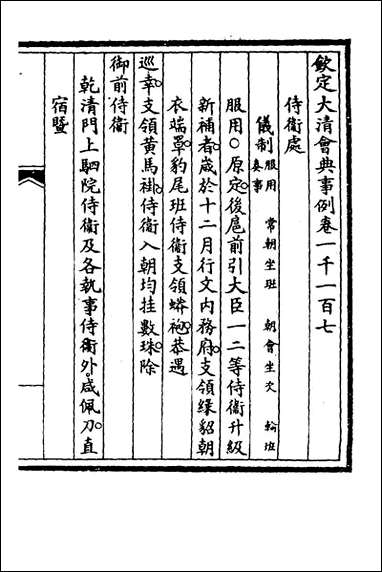 欽定大清會典事例卷一千一百七
侍衛處
儀制 服用 常朝坐班 朝會坐次 輪班
奏事
服用○原定後扈前引大臣一二等侍衛升級
新補者歲於十二月行文內務府支領緣貂朝
衣端罩豹尾班侍衛支領蟒袍恭遇
巡幸支領黃馬褂侍衛入朝均挂數珠除
御前侍衛
乾清門上駟院侍衛及各執事侍衛外咸佩刀直
宿暨